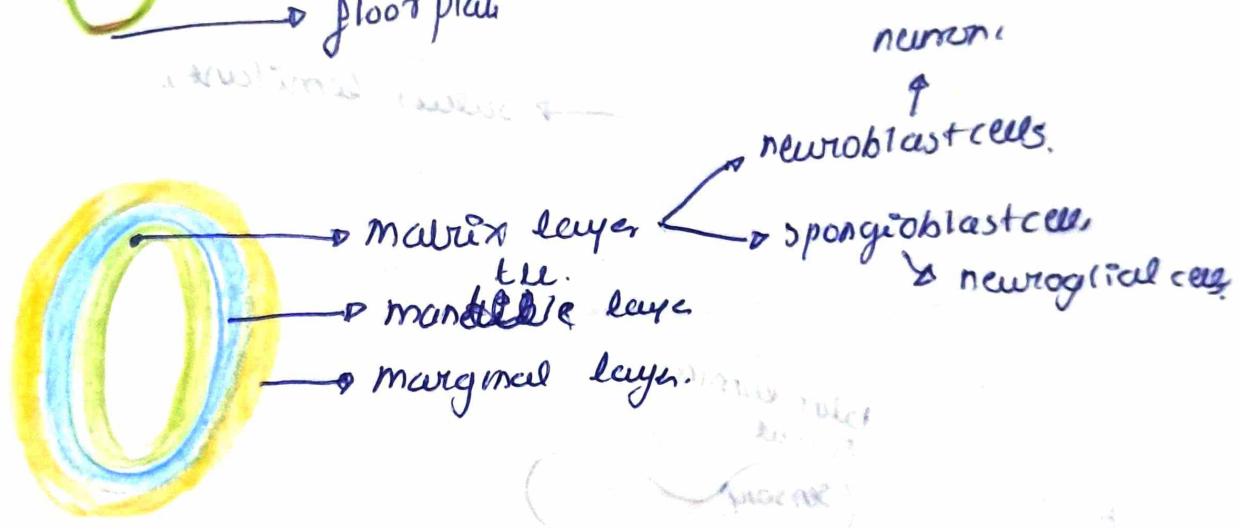 floor plate
neuron.
neuroblast cells.
matrix layer
spongioblast cells
tle.
neuroglial cells.
layer
marginal layer.